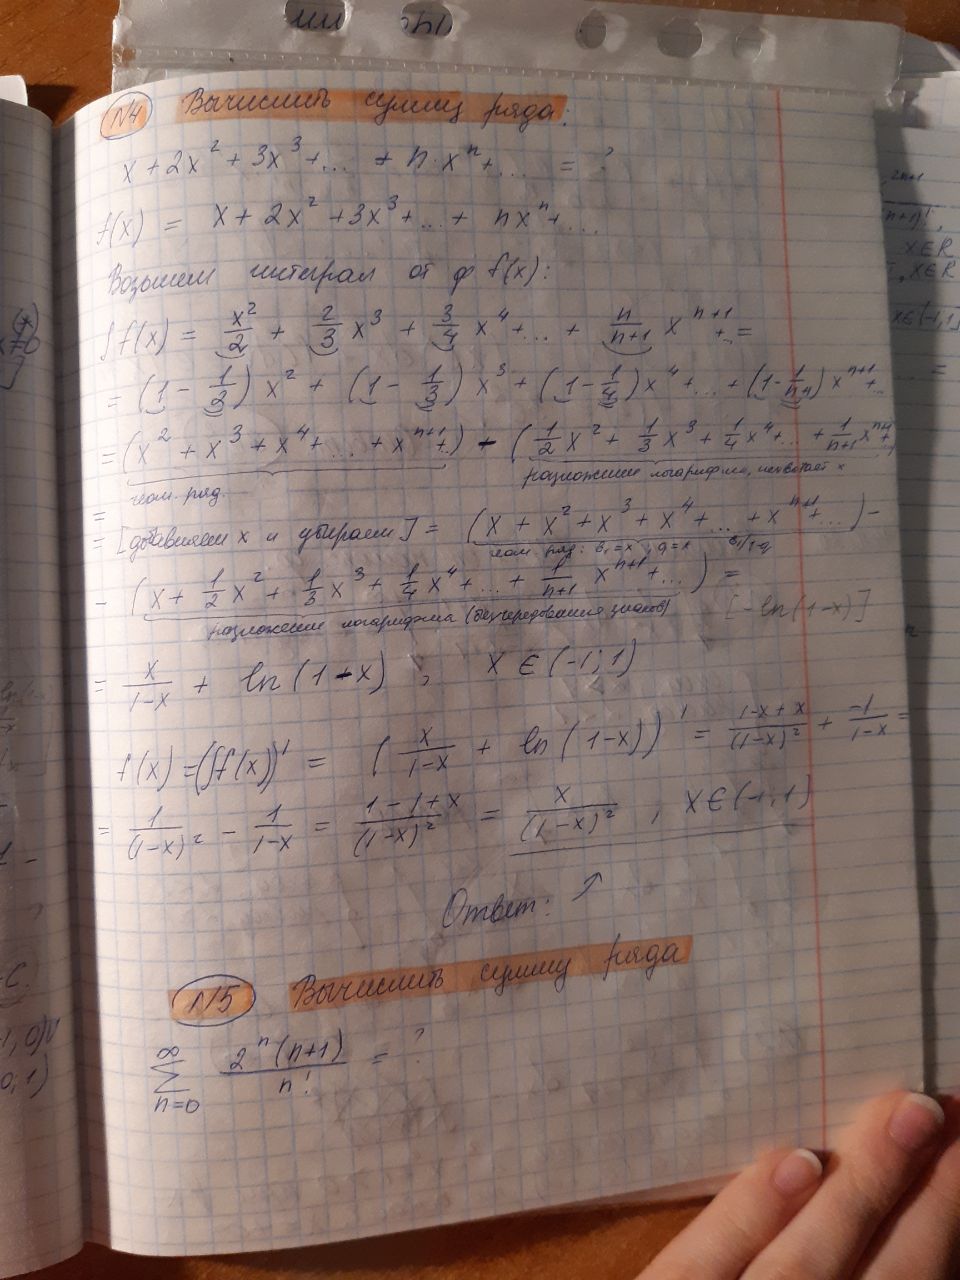 N4 Вычислить сумму ряда:
x + 2x² + 3x³ + ... + n·xⁿ + ... = ?
f(x) = x + 2x² + 3x³ + ... + nxⁿ + ...
Возьмем интеграл от ф f(x):
∫f(x) = x²/2 + 2/3 x³ + 3/4 x⁴ + ... + n/(n+1) xⁿ⁺¹ + ... =
= (1 - 1/2)x² + (1 - 1/3)x³ + (1 - 1/4)x⁴ + ... + (1 - 1/(n+1))xⁿ⁺¹ + ...
= (x² + x³ + x⁴ + ... + xⁿ⁺¹ + ...) - (1/2 x² + 1/3 x³ + 1/4 x⁴ + ... + 1/(n+1) xⁿ⁺¹ ...)
геом. ряд. разложение логарифма, не хватает x
=
= [добавляем x и убираем] = (x + x² + x³ + x⁴ + ... + xⁿ⁺¹ + ...) -
геом. ряд: b₁ = x, q = x b₁/1-q
- (x + 1/2 x² + 1/3 x³ + 1/4 x⁴ + ... + 1/(n+1) xⁿ⁺¹ + ...) =
разложение логарифма (без чередования знаков) [-ln(1-x)]
= x/(1-x) + ln(1-x), x ∈ (-1; 1)
f(x) = (∫f(x))' = (x/(1-x) + ln(1-x))' = (1-x+x)/(1-x)² + -1/(1-x) =
= 1/(1-x)² - 1/(1-x) = (1-1+x)/(1-x)² = x/(1-x)², x ∈ (-1, 1)
Ответ: ↗
N5 Вычислить сумму ряда
∞
∑ 2ⁿ(n+1)/n! = ?
n=0